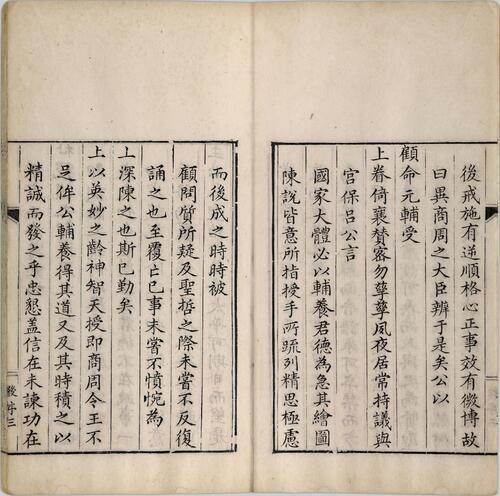 後戒施有逆順格心正事效有微博故
曰異商周之大臣辨于是矣公以
顧命元輔受
上眷倚襄贊密勿孳孳夙夜居常持議與
宮保呂公言
國家大體必以輔養君德為急其繪圖
陳說皆意所指授手所疏列精思極慮
而後成之時時被
顧問質所疑及聖哲之際未嘗不反復
誦之也至覆亡已事未嘗不憤惋為
上深陳之也斯已勤矣
上以英妙之齡神智天授即商周令王不
足侔公輔養得其道又及其時積之以
精誠而發之乎忠懇蓋信在未諫功在
後序三